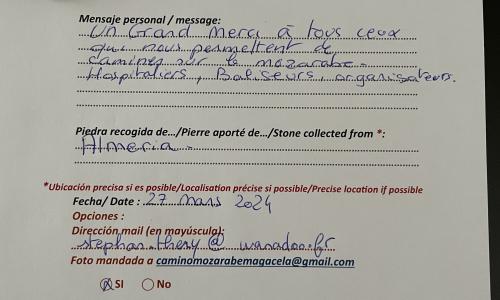 Mensaje personal / message:
Un Grand Merci à tous ceux
qui nous permettent de
caminer sur le mozarabe.
Hospitaliers, Baliseurs, organisateurs.
Piedra recogida de.../Pierre aporté de.../Stone collected from *:
Almeria.
*Ubicación precisa si es posible/Localisation précise si possible/Precise location if possible
Fecha/ Date : 27 mars 2024
Opciones :
Dirección mail (en mayúscula):
stephan.thery@wanadoo.fr
Foto mandada a caminomozarabemagacela@gmail.com
SI No